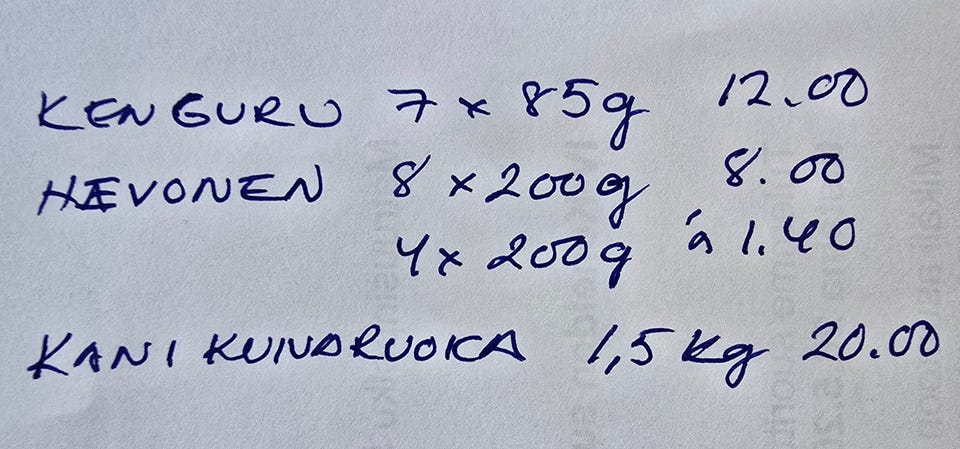 KENGURU 7 x 85g 12.00
HÆVONEN 8 x 200g 8.00
4x 200g á 1.40
KANI KUIVARUOKA 1,5 kg 20.00